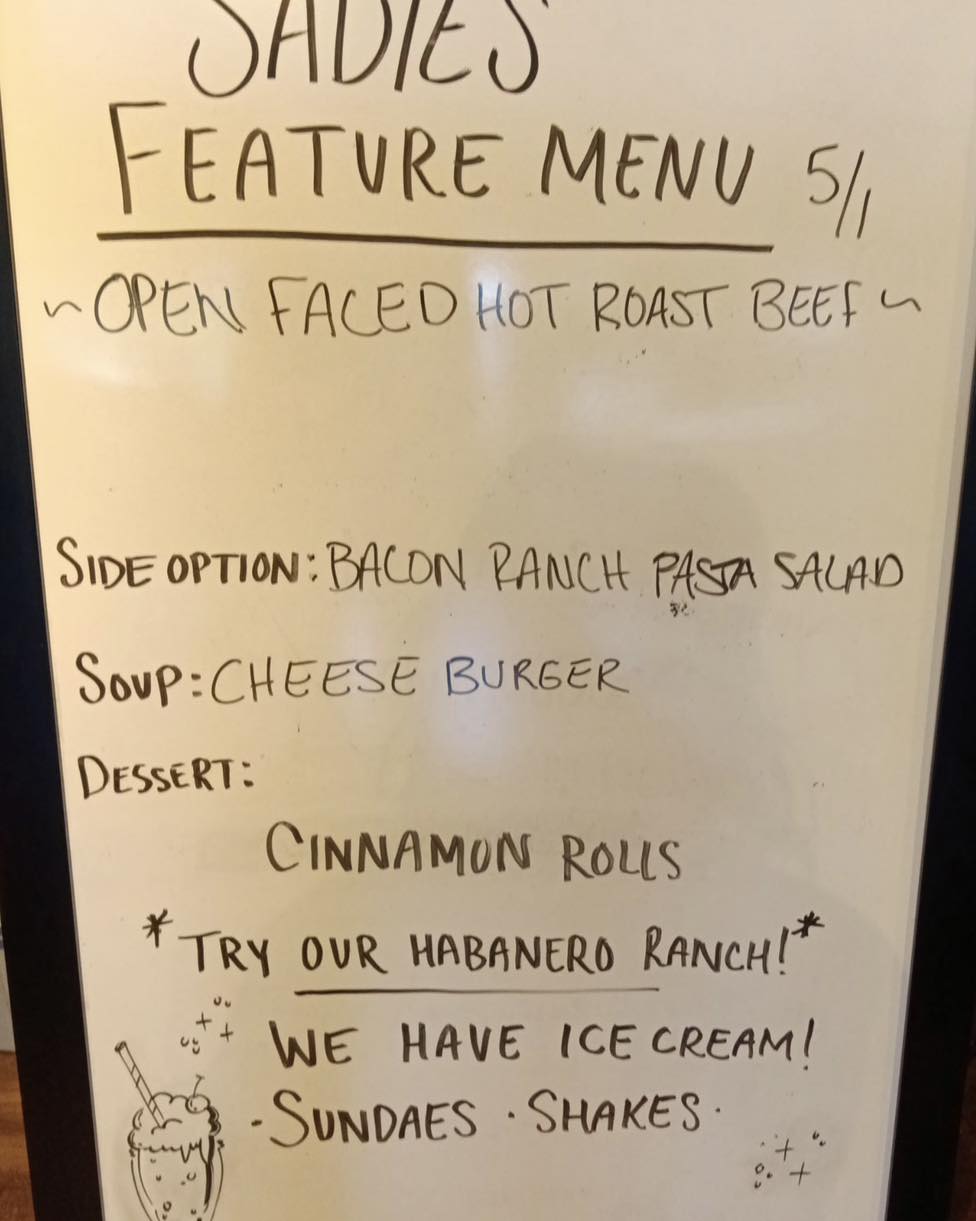 SADIES'
FEATURE MENU 5/1
~ OPEN FACED HOT ROAST BEEF ~
SIDE OPTION: BACON RANCH PASTA SALAD
SOUP: CHEESE BURGER
DESSERT:
CINNAMON ROLLS
*TRY OUR HABANERO RANCH!*
WE HAVE ICE CREAM!
-SUNDAES · SHAKES ·